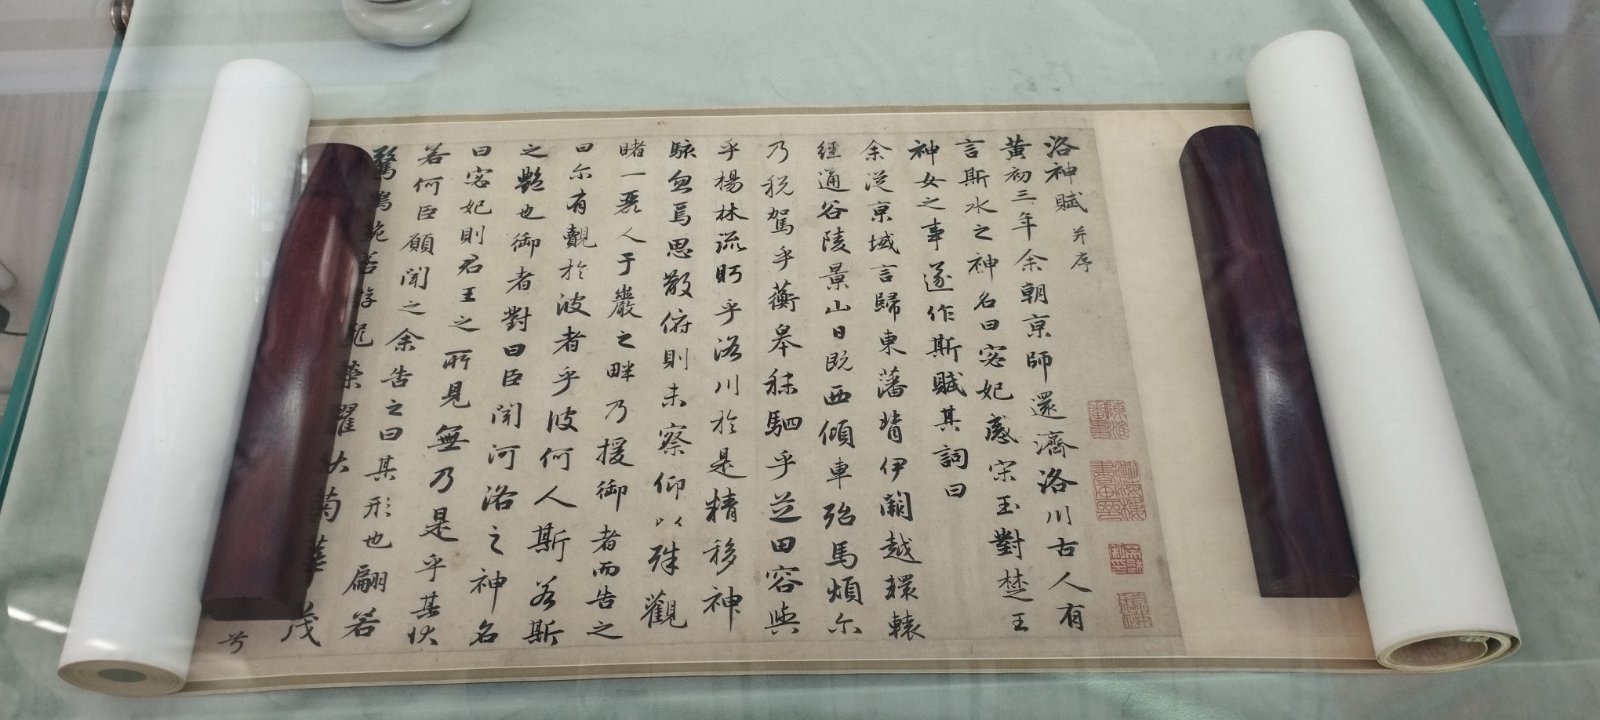 洛神賦 并序
黃初三年余朝京師還濟洛川古人有
言斯水之神名曰宓妃感宋玉對楚王
神女之事遂作斯賦其詞曰
余從京域言歸東藩背伊闕越轘轅
經通谷陵景山日既西傾車殆馬煩尔
乃税駕乎蘅皋秣駟乎芝田容與
乎楊林流眄乎洛川於是精移神
駭忽焉思散俯則未察仰以殊觀
睹一麗人于巖之畔乃援御者而告之
曰尔有覿於彼者乎彼何人斯若斯
之艷也御者對曰臣聞河洛之神名
曰宓妃則君王之所見無乃是乎其狀
若何臣願聞之余告之曰其形也翩若
驚鴻婉若游龍榮曜秋菊華茂